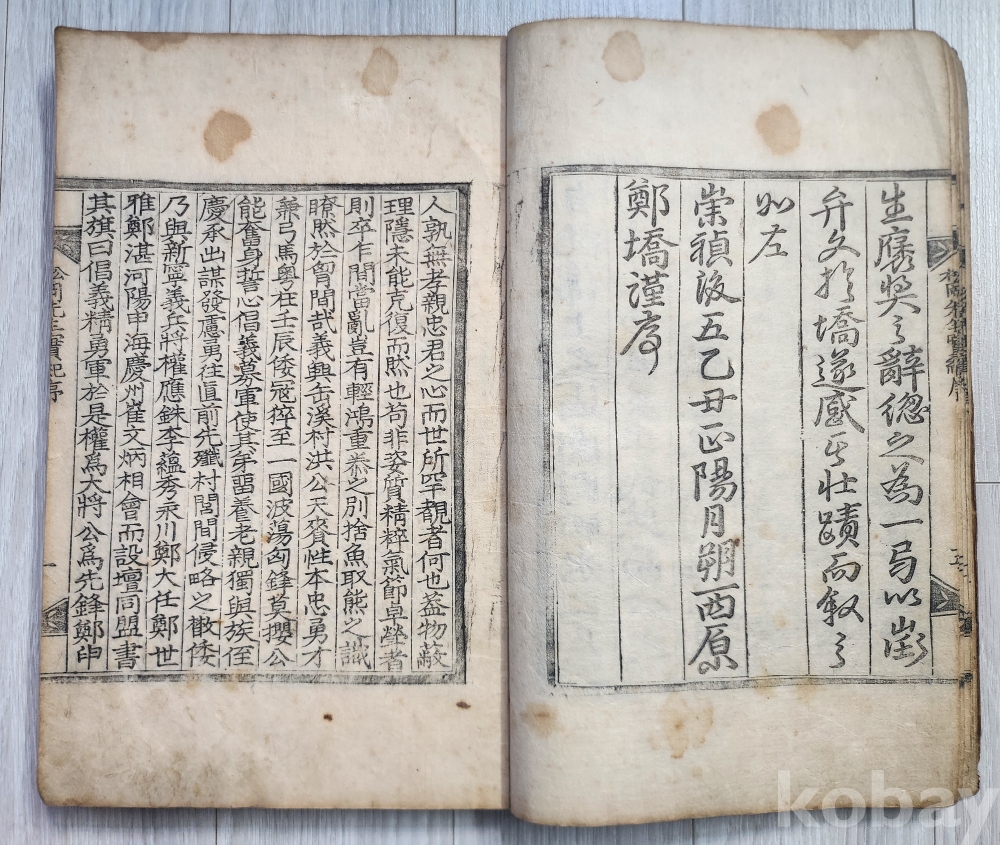 生褒奬之辭緫之為一局以
弁文於墧遂感其壯蹟而叙之
如左
崇禎後五乙丑正陽月朔西原
鄭墧謹序
人孰無孝親忠君之心而世所罕覩者何也盖物蔽
理隱未能克復而然也苟非姿質精粹氣節卓犖者
則卒乍間當亂豈有輕鴻重泰之別捨魚取熊之識
瞭然於胷間哉義興缶溪村洪公天賚性本忠勇才
兼弓馬粤在壬辰倭寇猝至一國波蕩匈鋒莫攖公
能奮身誓心倡義募軍使其芽畱養老親獨與族侄
慶承出謀發慮勇往直前先殲村閭間侵略之散倭
乃與新寧義兵將權應銖李蘊秀永川鄭大任鄭世
雅鄭湛河陽申海慶州崔文炳相會而設壇同盟書
其旗曰倡義精勇軍於是權爲大將公爲先鋒鄭申
松岡先生實紀序
一
kobay